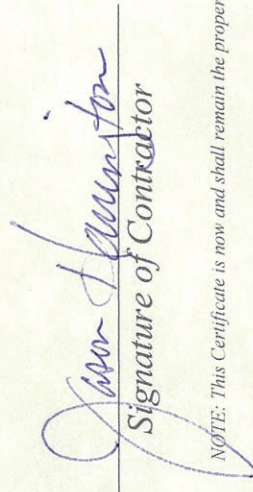 Jason
Signature of Contractor
NOTE: This Certificate is now and shall remain the proper